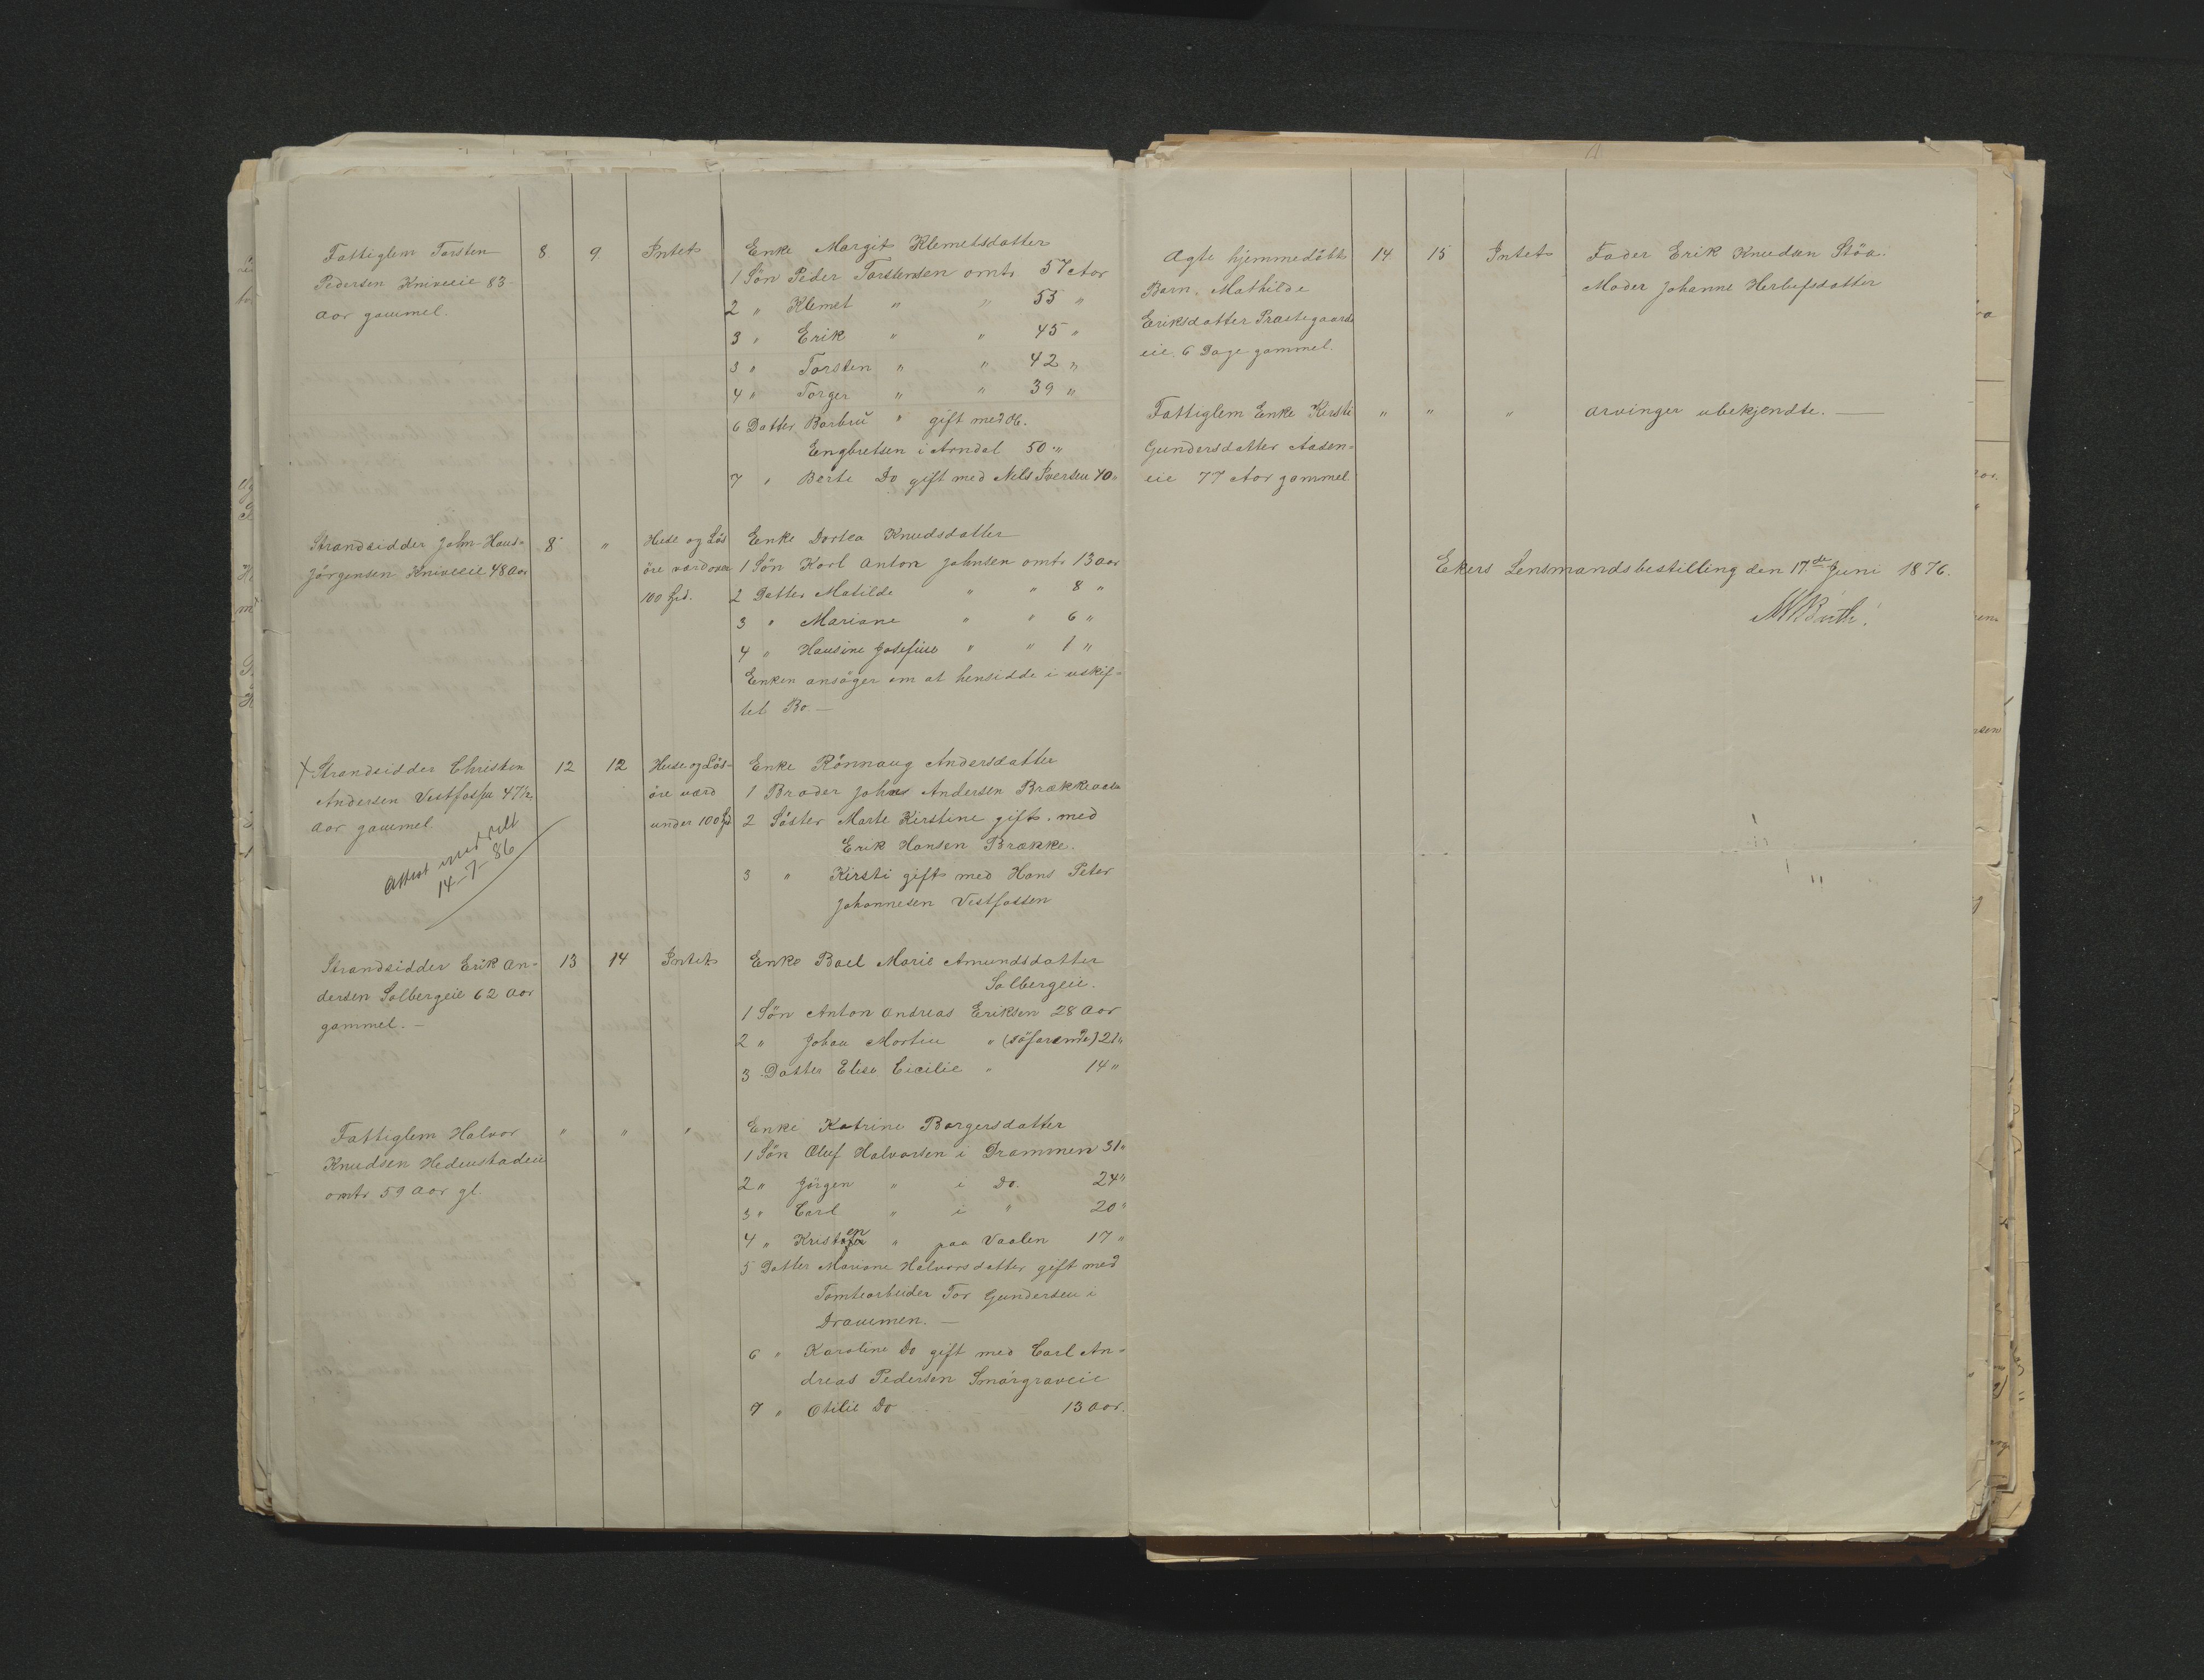 Fattiglem Torsten 8 9 Intet Enke Margit Klemetsdatter
Pedersen Kniveeie 83 1 Sön Peder Torstensen omtr 57 Aar
aar gammel. 2 " Klemet " " 55 "
3 " Erik " " 45 "
3 " Torsten " " 42 "
4 " Torger " " 39 "
6 Datter Barbru " gift med Ob.
Engbretsen i Arndal 50 "
7 " Berte Do gift med Nels Iversen 40 "
Strandsidder John Hans= 8 " Huse og Lös Enke Dortea Knudsdatter
Jörgensen Kniveeie 48 Aar öre værd over 1 Sön Karl Anton Johnsen omtr 13 aar
100 Spd. 2 Datter Matilde " " 8 "
3 " Mariane " " 6 "
4 " Hansine Josefine " " 1 "
Enken ansöger om at hensidde i uskif=
tet Bo. —
X Strandsidder Christen 12 12 Huse og Lös- Enke Rönnaug Andersdatter
Andersen Vestfossen 47½ öre værd 1 Broder Johan Andersen Brækkeaasen
aar gammel. under 100 Spd 2 Söster Marte Kirstine gift med
Erik Hansen Brække.
Attest meddelt
14-7-86
3 " Kirsti gift med Hans Peter
Johannesen Vestfossen
Strandsidder Erik An= 13 14 Intet Enke Boel Marie Amundsdatter
dersen Solbergeie 62 Aar Solbergeie.
gammel. — 1 Sön Anton Andreas Eriksen 28 Aar
2 " Johan Martin " (söfarende) 21 "
3 Datter Elise Cicilie " 14 "
Fattiglem Halvor " " " Enke Katrine Borgersdatter
Knudsen Hedenstadeie 1 Sön Oluf Halvorsen i Drammen 31 "
omtr 59 Aar gl. 2 " Jörgen " i Do. 24 "
3 " Carl " i " 20 "
4 " " paa Vaalen 17 "
5 Datter Mariane Halvorsdatter gift med
Tomtearbeider Tor Gundersen i
Drammen. —
6 " Karoline Do gift med Carl An=
dreas Pedersen Smörgraveie
7 " Otilie Do 13 Aar.
Ægte hjemmedöbt 14 15 Intet Fader Erik Knudsen Stöa.
Barn. Mathilde Moder Johanne Herlufsdatter
Eriksdatter Præstegaards
eie. 6 Dage gammel.
Fattiglem Enke Kirsti " " " Arvinger ubekjendte. —
Gundersdatter Aasen=
eie 77 Aar gammel
Ekers Lensmandsbestilling den 17de Juni 1876.